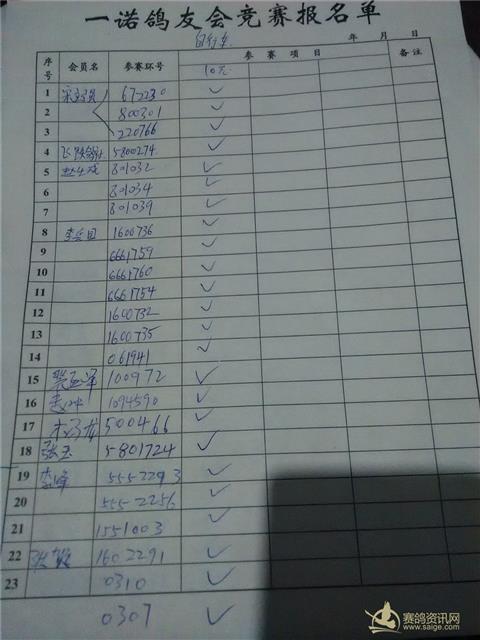 一诺鸽友会竞赛报名单
自行车
年 月 日
序号 会员名 参赛环号 参赛项目 备注
10元
1 672230 ✓
2 800301 ✓
3 220766 ✓
4 5800274 ✓
5 801032 ✓
6 801034 ✓
7 801039 ✓
8 1600736 ✓
9 6661759 ✓
10 6661760 ✓
11 6661754 ✓
12 1600732 ✓
13 1600735 ✓
14 061941 ✓
15 100972 ✓
16 1094590 ✓
17 500466 ✓
18 张玉 5801724 ✓
19 李峰 5552293 ✓
20 5552256 ✓
21 1551003 ✓
22 1602291 ✓
23 0310 ✓
0307 ✓
赛鸽资讯网
www.saige.com